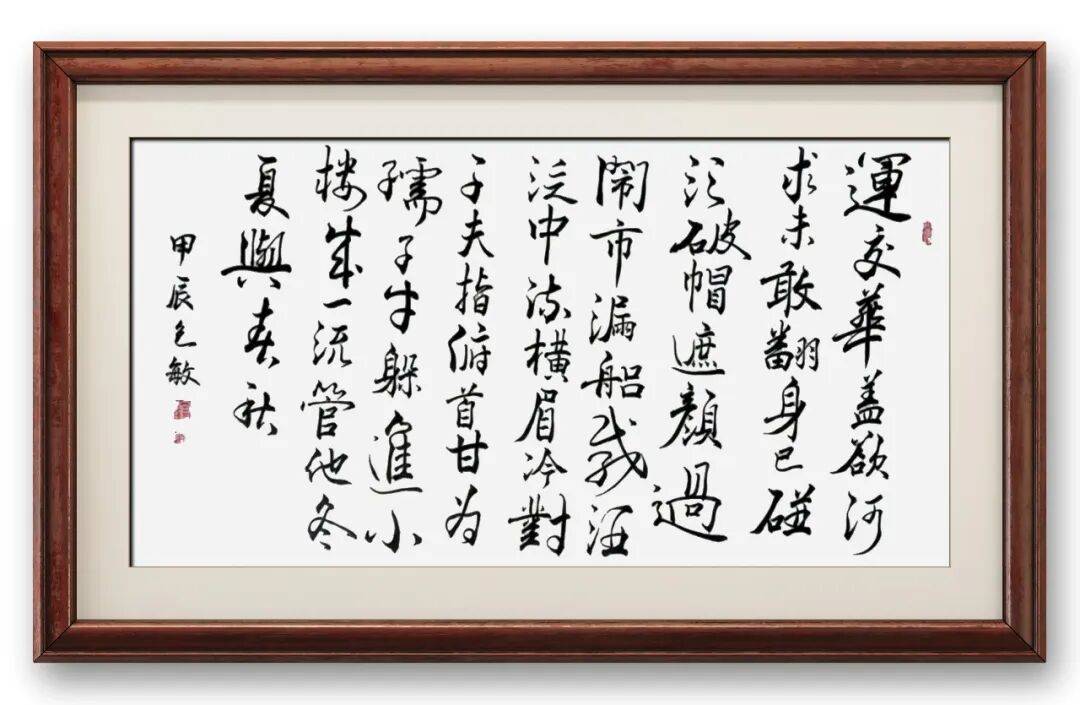 運交華盖欲何
求未敢翻身已碰
头破帽遮顏過
閙市漏船載酒
泛中流橫眉冷對
千夫指俯首甘为
孺子牛躲進小
楼成一统管他冬
夏與春秋
甲辰敏